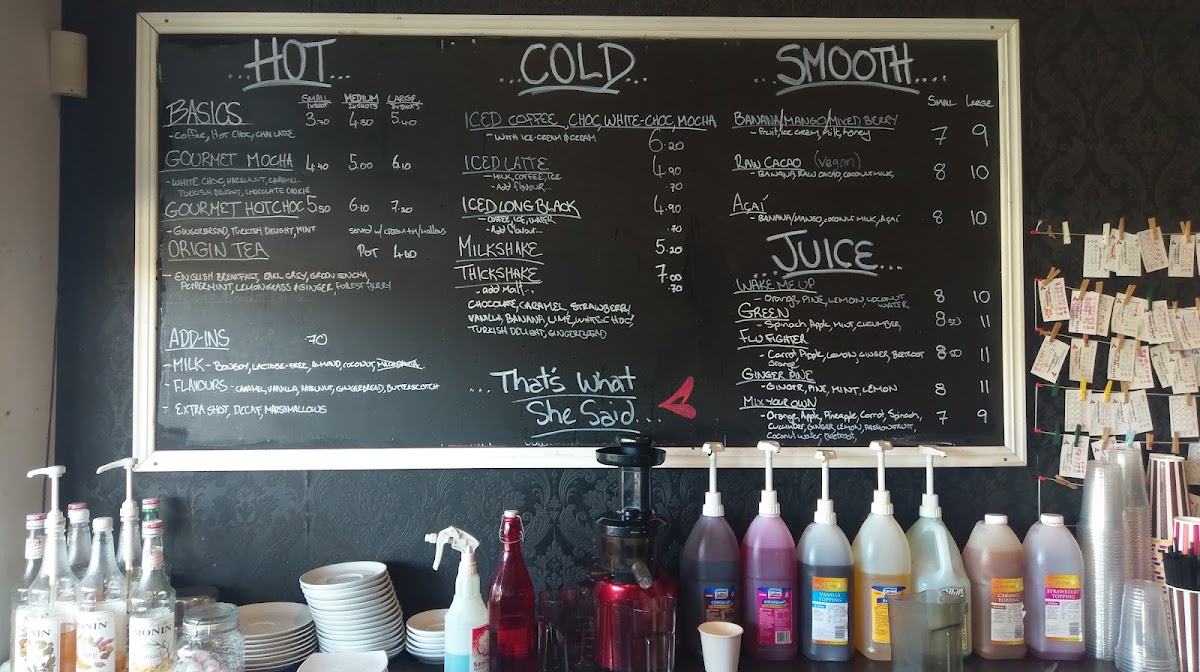 ...HOT...
SMALL MEDIUM LARGE
BASICS 3.70 4.30 5.40
- Coffee, Hot Choc, Chai Latte
GOURMET MOCHA 4.40 5.00 6.10
- WHITE CHOC, HAZELNUT, CARAMEL
TURKISH DELIGHT, CHOCOLATE COOKIE
GOURMET HOTCHOC 5.50 6.10 7.20
- GINGERBREAD, TURKISH DELIGHT, MINT
ORIGIN TEA POT 4.40
- ENGLISH BREAKFAST, EARL GREY, GREEN SENCHA,
PEPPERMINT, LEMONGRASS & GINGER, FOREST BERRY
ADD-INS .70
- MILK - BONSOY, LACTOSE-FREE, ALMOND, COCONUT, MACADAMIA
- FLAVOURS - CARAMEL, VANILLA, HAZELNUT, GINGERBREAD, BUTTERSCOTCH
- EXTRA SHOT, DECAF, MARSHMALLOWS
...COLD...
ICED COFFEE, CHOC, WHITE-CHOC, MOCHA
- WITH ICE-CREAM & CREAM 6.20
ICED LATTE 4.90
- MILK, COFFEE, ICE
- Add flavour... .70
ICED LONG BLACK 4.90
- COFFEE, ICE, WATER
- Add flavour... .70
MILKSHAKE 5.20
THICKSHAKE 7.00
- add Malt... .70
CHOCOLATE, CARAMEL, STRAWBERRY
VANILLA, BANANA, LIME, WHITE CHOC,
TURKISH DELIGHT, GINGERBREAD
...THAT'S WHAT
SHE SAID...
...SMOOTH...
SMALL LARGE
BANANA/MANGO/MIXED BERRY 7 9
- Fruit, ice cream, milk, honey
RAW CACAO (vegan) 8 10
- BANANA, RAW CACAO, COCONUT MILK,
AÇAÍ 8 10
- BANANA/MANGO, COCONUT MILK, AÇAÍ
...JUICE...
WAKE ME UP 8 10
- Orange, PINE, LEMON, COCONUT
WATER
GREEN 8.50 11
- Spinach, Apple, MINT, CUCUMBER
FLU FIGHTER 8.50 11
- Carrot, Apple, LEMON, GINGER, BEETROOT
Orange
GINGER PINE 8 11
- GINGER, PINE, MINT, LEMON
MIX YOUR OWN 7 9
- Orange, Apple, Pineapple, Carrot, Spinach,
CUCUMBER, GINGER, LEMON, PASSIONFRUIT,
Coconut water, Beetroot
MONIN
MONIN
MONIN
VANILLA
TOPPING
CARAMEL
TOPPING
STRAWBERRY
TOPPING